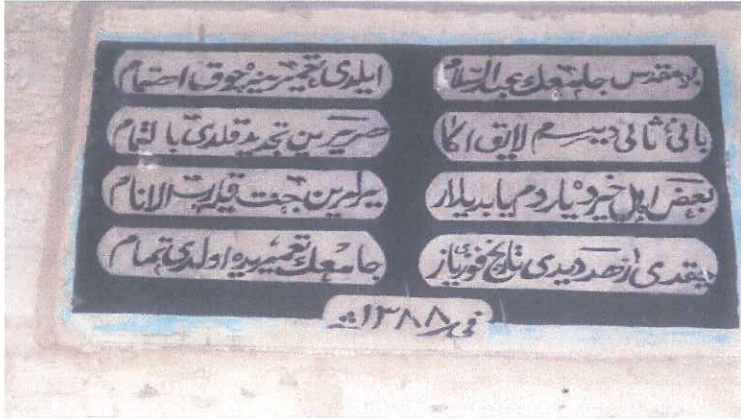 بو مقدس جامعك عبد السلام ایلدی تعمیرینه چوق اهتمام
بانئ ثانی دیسم لایق اکا هر یرین تجدید قلدی بالتمام
بعض اهل خیرده یاردم یابدیلار یرلرین جنت قیله رب الانام
چیقدی ازهد دیدی تاریخ فوریاز جامعك تعمیریده اولدی تمام
فی ١٣٨٨ سنة